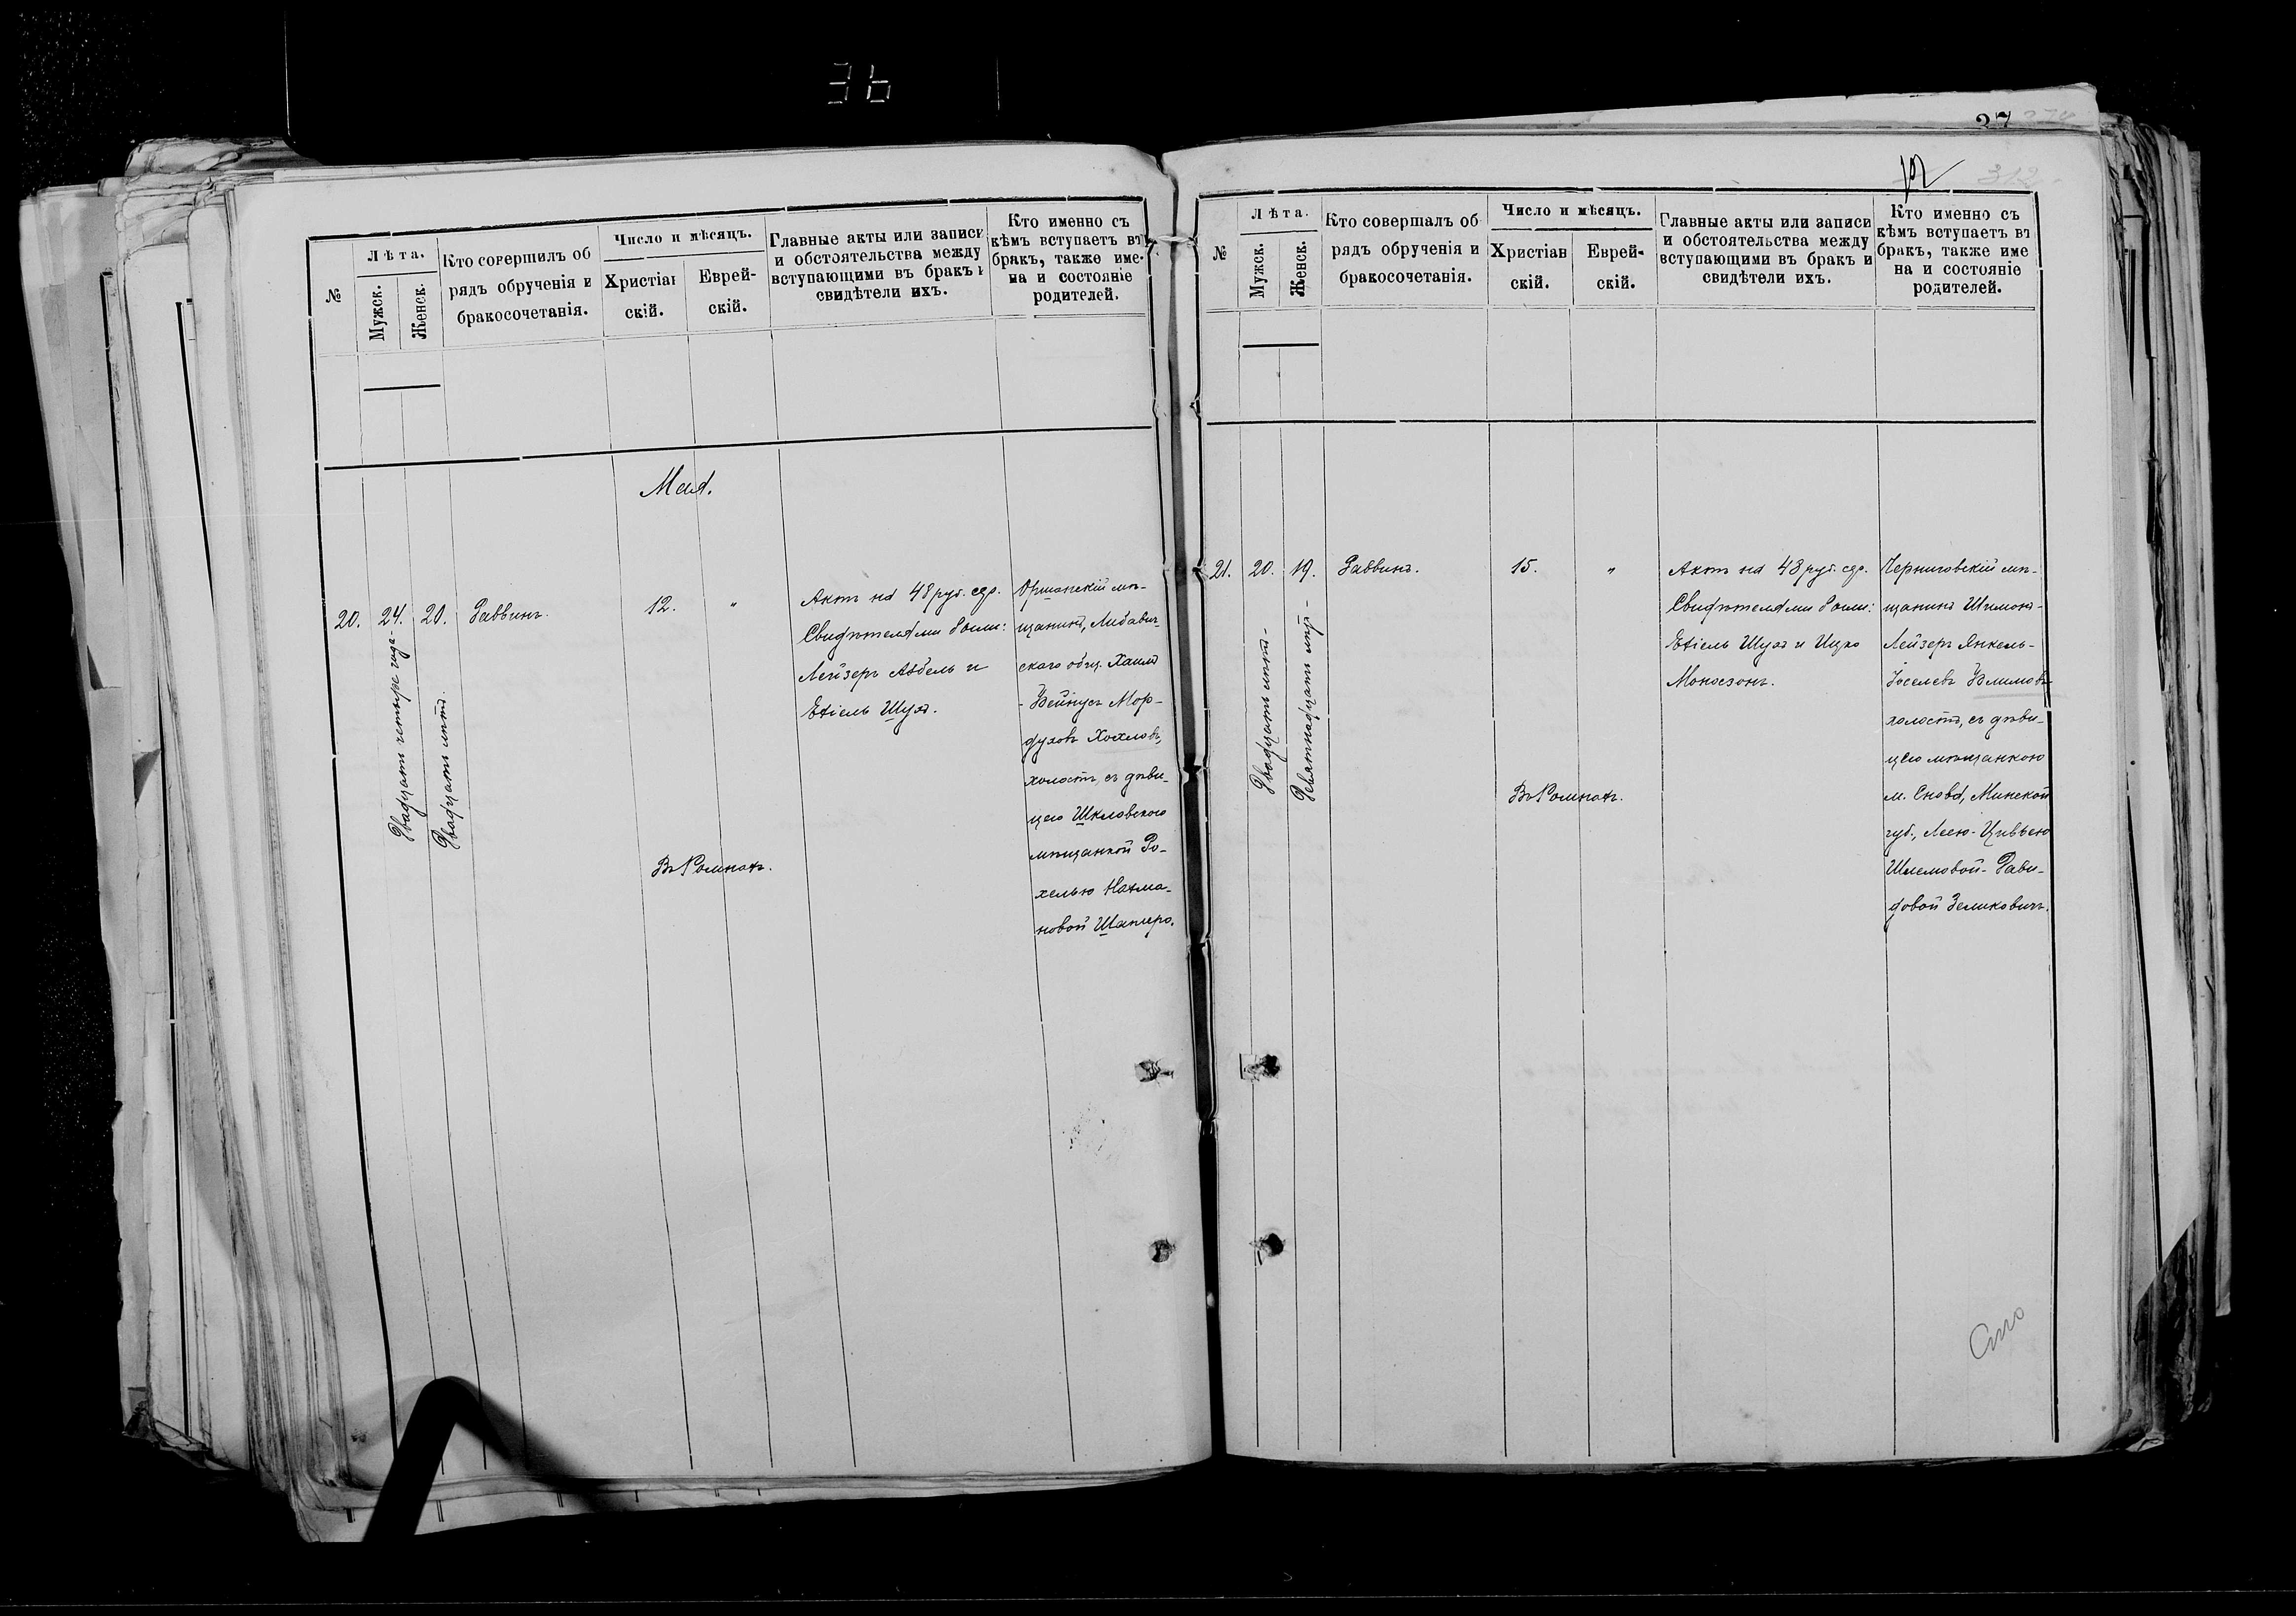 36
№
Лѣта.
Мужск.
Женск.
Кто совершилъ об
рядъ обрученія и
бракосочетанія.
Число и мѣсяцъ.
Христіан
скій.
Еврей-
скій.
Главные акты или записи
и обстоятельства между
вступающими въ бракъ и
свидѣтели ихъ.
Кто именно съ
кѣмъ вступаетъ въ
бракъ, также име-
на и состояніе
родителей.
Мая.
20.
24.
Двадцать четыре года
20.
Двадцать лѣтъ
Раввинъ.
12.
"
Въ Ромнахъ.
Актъ на 48 руб. сер.
Свидѣтелями были:
Лейзеръ Абель и
Ехіель Шухъ.
Оршанскій мѣ-
щанинъ, Любавич
скаго общ. Хаимъ
-Бейнусъ Мор-
духовъ Хохловъ,
холостъ, съ дѣви-
цею Шкловского
мѣщанкой Ро-
хелью Нахма-
новой Шапиро.
37
312
№
Лѣта.
Мужск.
Женск.
Кто совершалъ об
рядъ обрученія и
бракосочетанія.
Число и мѣсяцъ.
Христіан
скій.
Еврей-
скій.
Главные акты или записи
и обстоятельства между
вступающими въ бракъ и
свидѣтели ихъ.
Кто именно съ
кѣмъ вступаетъ въ
бракъ, также име
на и состояніе
родителей.
21.
20.
Двадцать лѣтъ-
19.
Девятнадцать лѣтъ-
Раввинъ.
15.
"
Въ Ромнахъ.
Актъ на 48 руб. сер.
Свидѣтелями были:
Ехіель Шухъ и Ицко
Моносзонъ.
Черниговскій мѣ-
щанинъ Шимонъ-
Лейзеръ Янкель-
Іоселевъ
холостъ, съ дѣви-
цею мѣщанкою
м. Снова, Минской
губ., Леею-Цивьею
Шлемовой-Дави-
довой Зеликовичъ.
Сто